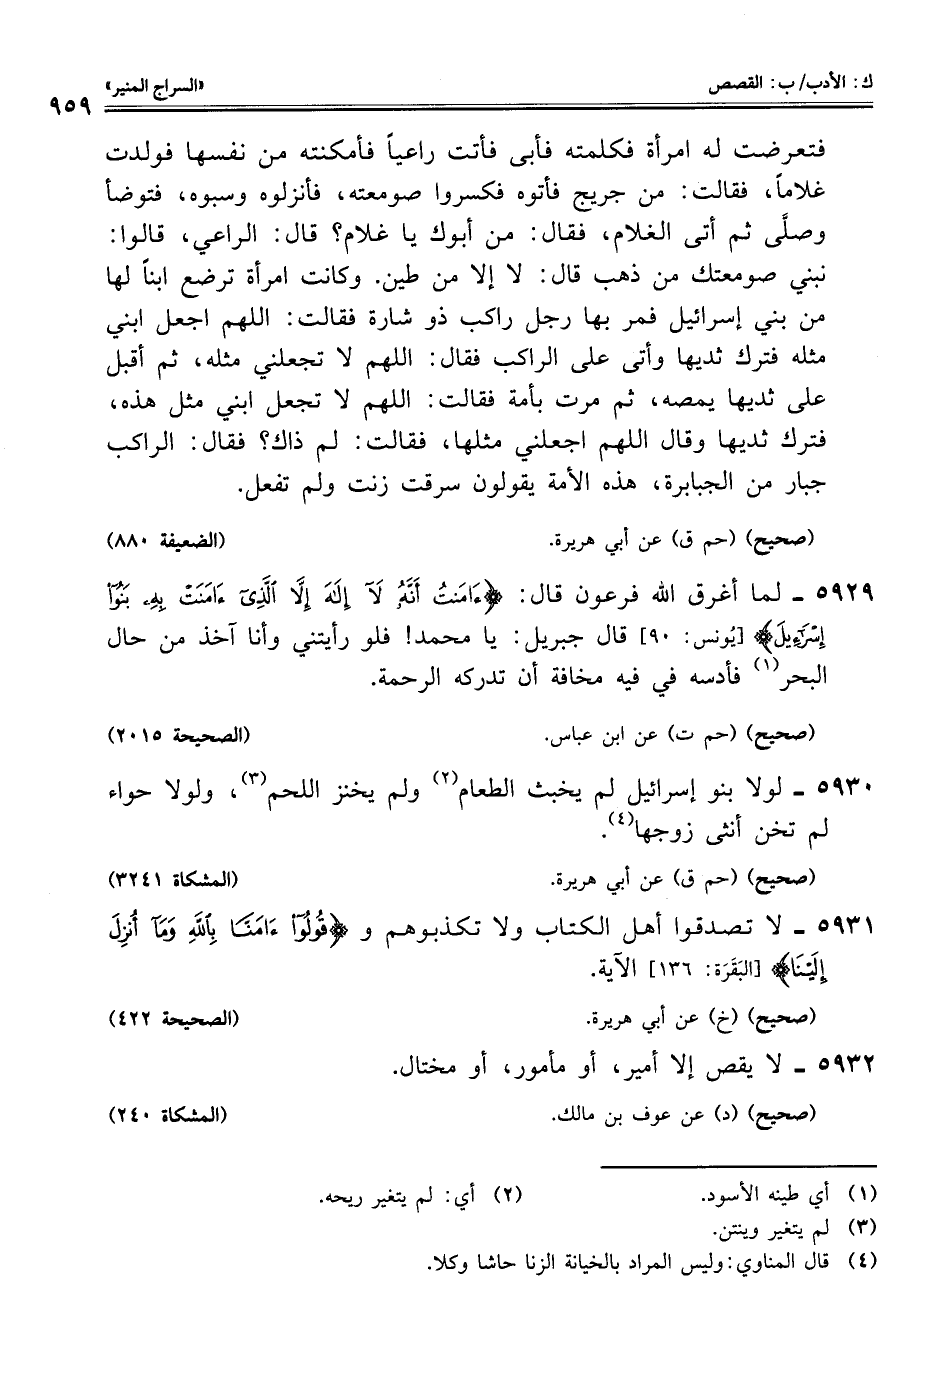 ك: الأدب/ ب: القصص «السراج المنير» ٩٥٩
فتعرضت له امرأة فكلمته فأبى فأتت راعياً فأمكنته من نفسها فولدت
غلاماً، فقالت: من جريج فأتوه فكسروا صومعته، فأنزلوه وسبوه، فتوضأ
وصلَّى ثم أتى الغلام، فقال: من أبوك يا غلام؟ قال: الراعي، قالوا:
نبني صومعتك من ذهب قال: لا إلا من طين. وكانت امرأة ترضع ابناً لها
من بني إسرائيل فمر بها رجل راكب ذو شارة فقالت: اللهم اجعل ابني
مثله فترك ثديها وأتى على الراكب فقال: اللهم لا تجعلني مثله، ثم أقبل
على ثديها يمصه، ثم مرت بأمة فقالت: اللهم لا تجعل ابني مثل هذه،
فترك ثديها وقال اللهم اجعلني مثلها، فقالت: لم ذاك؟ فقال: الراكب
جبار من الجبابرة، هذه الأمة يقولون سرقت زنت ولم تفعل.
(صحيح) (حم ق) عن أبي هريرة. (الضعيفة ٨٨٠)
٥٩٢٩ - لما أغرق الله فرعون قال: ﴿ءَامَنتُ أَنَّهُۥ لَآ إِلَٰهَ إِلَّا ٱلَّذِىٓ ءَامَنَتْ بِهِۦ بَنُوٓا۟
إِسْرَٰٓءِيلَ﴾ [يُونس: ٩٠] قال جبريل: يا محمد! فلو رأيتني وأنا آخذ من حال
البحر(١) فأدسه في فيه مخافة أن تدركه الرحمة.
(صحيح) (حم ت) عن ابن عباس. (الصحيحة ٢٠١٥)
٥٩٣٠ - لولا بنو إسرائيل لم يخبث الطعام(٢) ولم يخنز اللحم(٣)، ولولا حواء
لم تخن أنثى زوجها(٤).
(صحيح) (حم ق) عن أبي هريرة. (المشكاة ٣٢٤١)
٥٩٣١ - لا تصدقوا أهل الكتاب ولا تكذبوهم و ﴿قُولُوٓا۟ ءَامَنَّا بِٱللَّهِ وَمَآ أُنزِلَ
إِلَيْنَا﴾ [البَقَرَة: ١٣٦] الآية.
(صحيح) (خ) عن أبي هريرة. (الصحيحة ٤٢٢)
٥٩٣٢ - لا يقص إلا أمير، أو مأمور، أو مختال.
(صحيح) (د) عن عوف بن مالك. (المشكاة ٢٤٠)
(١) أي طينه الأسود. (٢) أي: لم يتغير ريحه.
(٣) لم يتغير وينتن.
(٤) قال المناوي: وليس المراد بالخيانة الزنا حاشا وكلا.